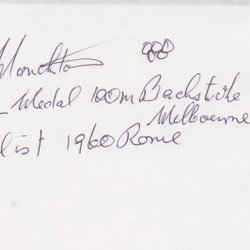 Monckton
Medal 100m Backstroke
Melbourne
list 1960 Rome